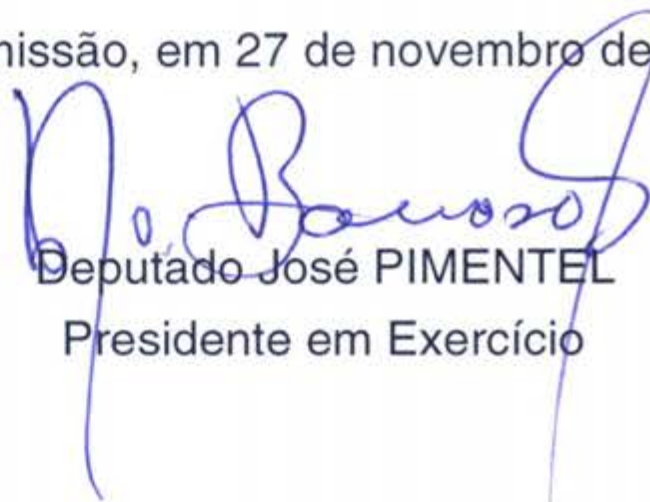 missão, em 27 de novembro de
Deputado José PIMENTEL
Presidente em Exercício